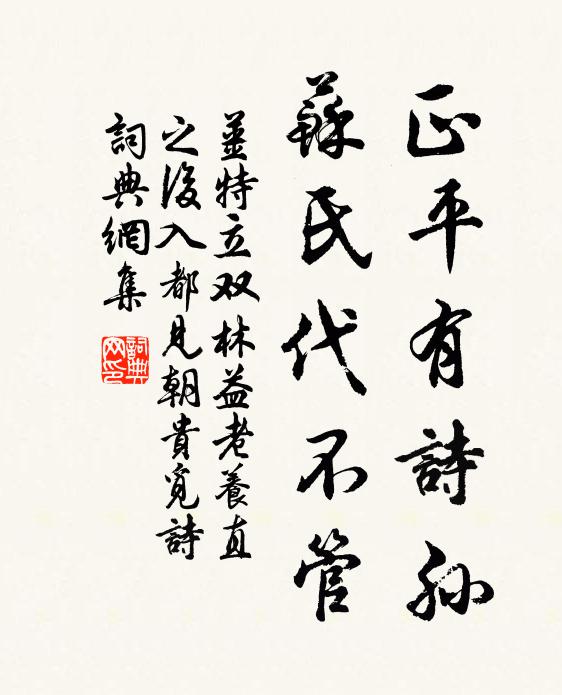 正平有詩孫
蘇氏代不管
姜特立双林益老養直
之後入都見朝貴覓詩
詞典網集
詞典
网印